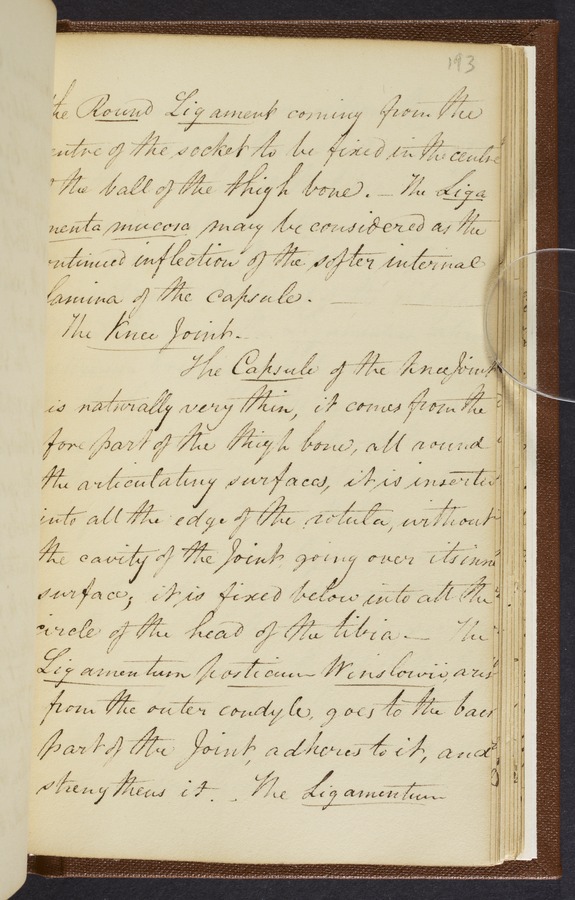 193
the Round Ligament coming from the
centre of the socket to be fixed in the centre
the ball of the thigh bone. — The Liga
menta mucosa may be considered as the
continued inflection of the softer internal
lamina of the capsule. —
The Knee Joint.
The Capsule of the knee Joint
is naturally very thin, it comes from the
fore part of the thigh bone, all round
the articulating surfaces, it is inserted
into all the edge of the rotula, without
the cavity of the Joint going over its inner
surface; it is fixed below into all the
circle of the head of the tibia — The
Ligamentum posticum Winslowii, aris
from the outer condyle, goes to the back
part of the Joint, adheres to it, and
strengthens it. The Ligamentum